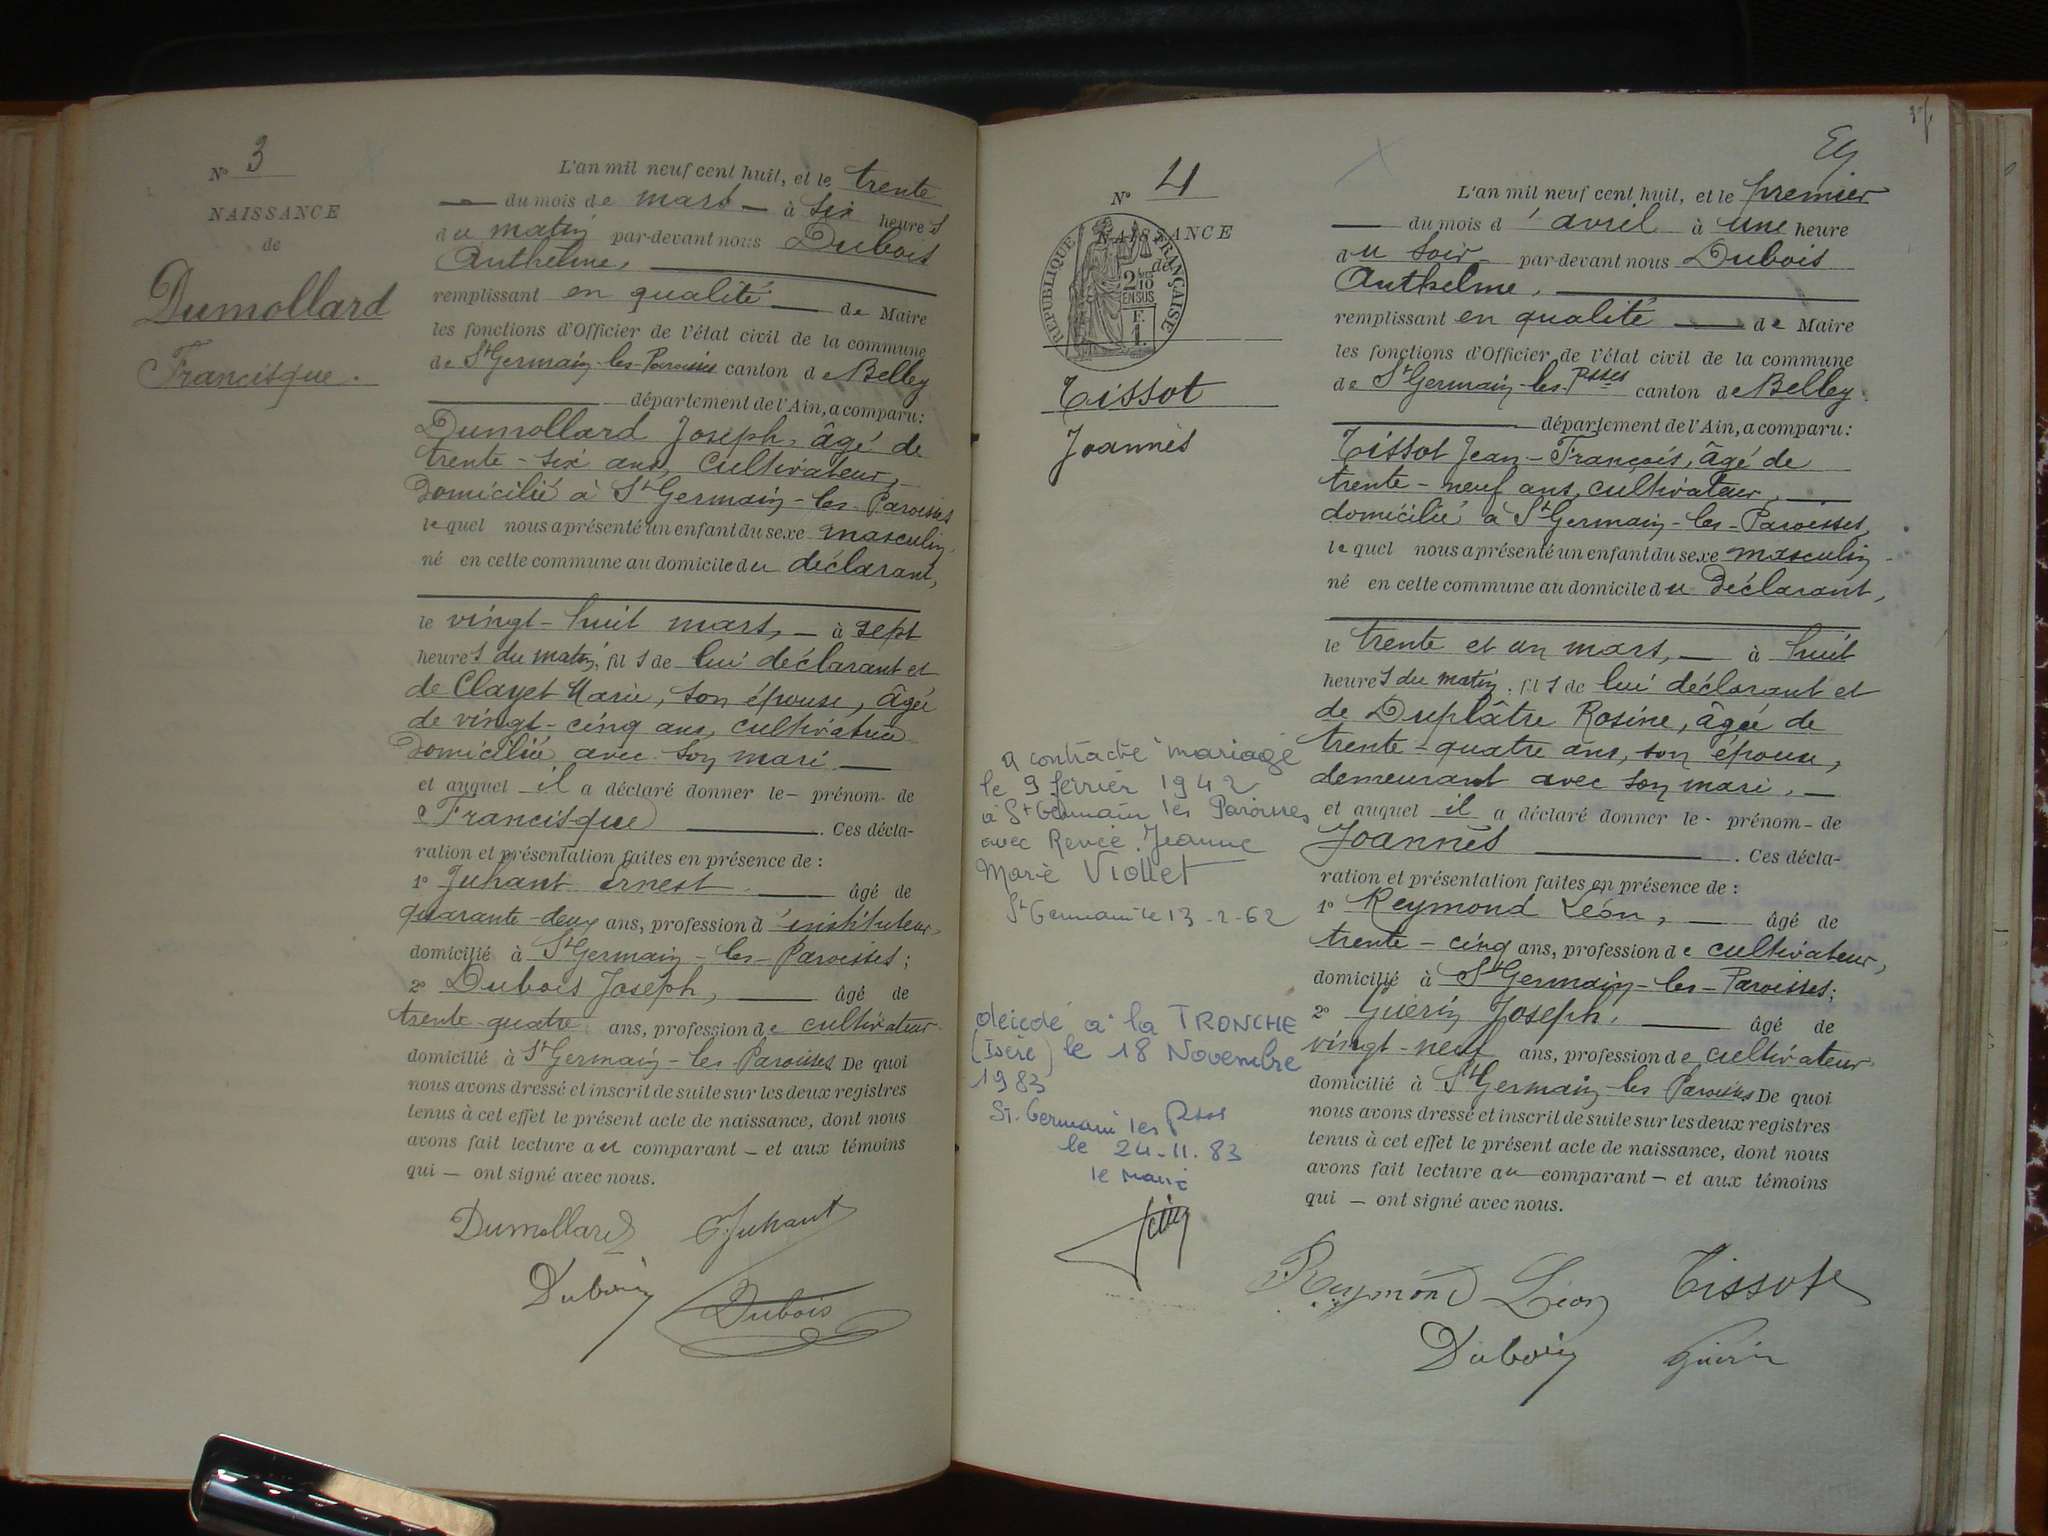 N° 3
NAISSANCE
de
Dumollard
Francisque.
L'an mil neuf cent huit, et le trente
— du mois de mars — à six heures
du matin par-devant nous Dubois
Anthelme,
remplissant en qualité — de Maire
les fonctions d'Officier de l'état civil de la commune
de St Germain-les-Paroisses canton de Belley
département de l'Ain, a comparu:
Dumollard Joseph, âgé de
trente-six ans, cultivateur,
domicilié à St Germain-les-Paroisses
lequel nous a présenté un enfant du sexe masculin,
né en cette commune au domicile du déclarant,
le vingt-huit mars, — à sept
heures du matin, fils de lui déclarant et
de Clayet Marie, son épouse, âgée
de vingt-cinq ans, cultivatrice
domiciliée avec son mari —
et auquel il a déclaré donner le - prénom - de
Francisque — . Ces décla-
ration et présentation faites en présence de :
1° Juhant Ernest — âgé de
quarante-deux ans, profession d'instituteur,
domicilié à St Germain-les-Paroisses;
2° Dubois Joseph, — âgé de
trente-quatre ans, profession de cultivateur
domicilié à St Germain-les-Paroisses De quoi
nous avons dressé et inscrit de suite sur les deux registres
tenus à cet effet le présent acte de naissance, dont nous
avons fait lecture au comparant — et aux témoins
qui — ont signé avec nous.
Dumollard Juhant
Dubois
Dubois
N° 4
NAISSANCE
de
REPUBLIQUE FRANÇAISE
2/10
EN SUS
F.
1.
Tissot
Joannès
L'an mil neuf cent huit, et le premier
— du mois d'avril à une heure
du soir — par-devant nous Dubois
Anthelme,
remplissant en qualité — de Maire
les fonctions d'Officier de l'état civil de la commune
de St Germain-les-Psses canton de Belley
département de l'Ain, a comparu:
Tissot Jean-François, âgé de
trente-neuf ans, cultivateur, —
domicilié à St Germain-les-Paroisses,
lequel nous a présenté un enfant du sexe masculin
né en cette commune au domicile du déclarant,
le trente et un mars, — à huit
heures du matin, fils de lui déclarant et
de Duplâtre Rosine, âgée de
trente-quatre ans, son épouse,
demeurant avec son mari, —
et auquel il a déclaré donner le - prénom - de
Joannès — . Ces décla-
ration et présentation faites en présence de :
1° Reymond Léon, — âgé de
trente-cinq ans, profession de cultivateur,
domicilié à St Germain-les-Paroisses;
2° Guérin Joseph, — âgé de
vingt-neuf ans, profession de cultivateur
domicilié à St Germain-les Paroisses De quoi
nous avons dressé et inscrit de suite sur les deux registres
tenus à cet effet le présent acte de naissance, dont nous
avons fait lecture au comparant — et aux témoins
qui — ont signé avec nous.
Reymond Léon Tissot
Dubois Guérin
a contracté mariage
le 9 février 1942
à St Germain les Paroisses
avec Renée Jeanne
Marie Viollet
St Germain le 13-2-62
décédé à la TRONCHE
(Isère) le 18 Novembre
1983
St. Germain les Psses
le 24.11.83
le Maire